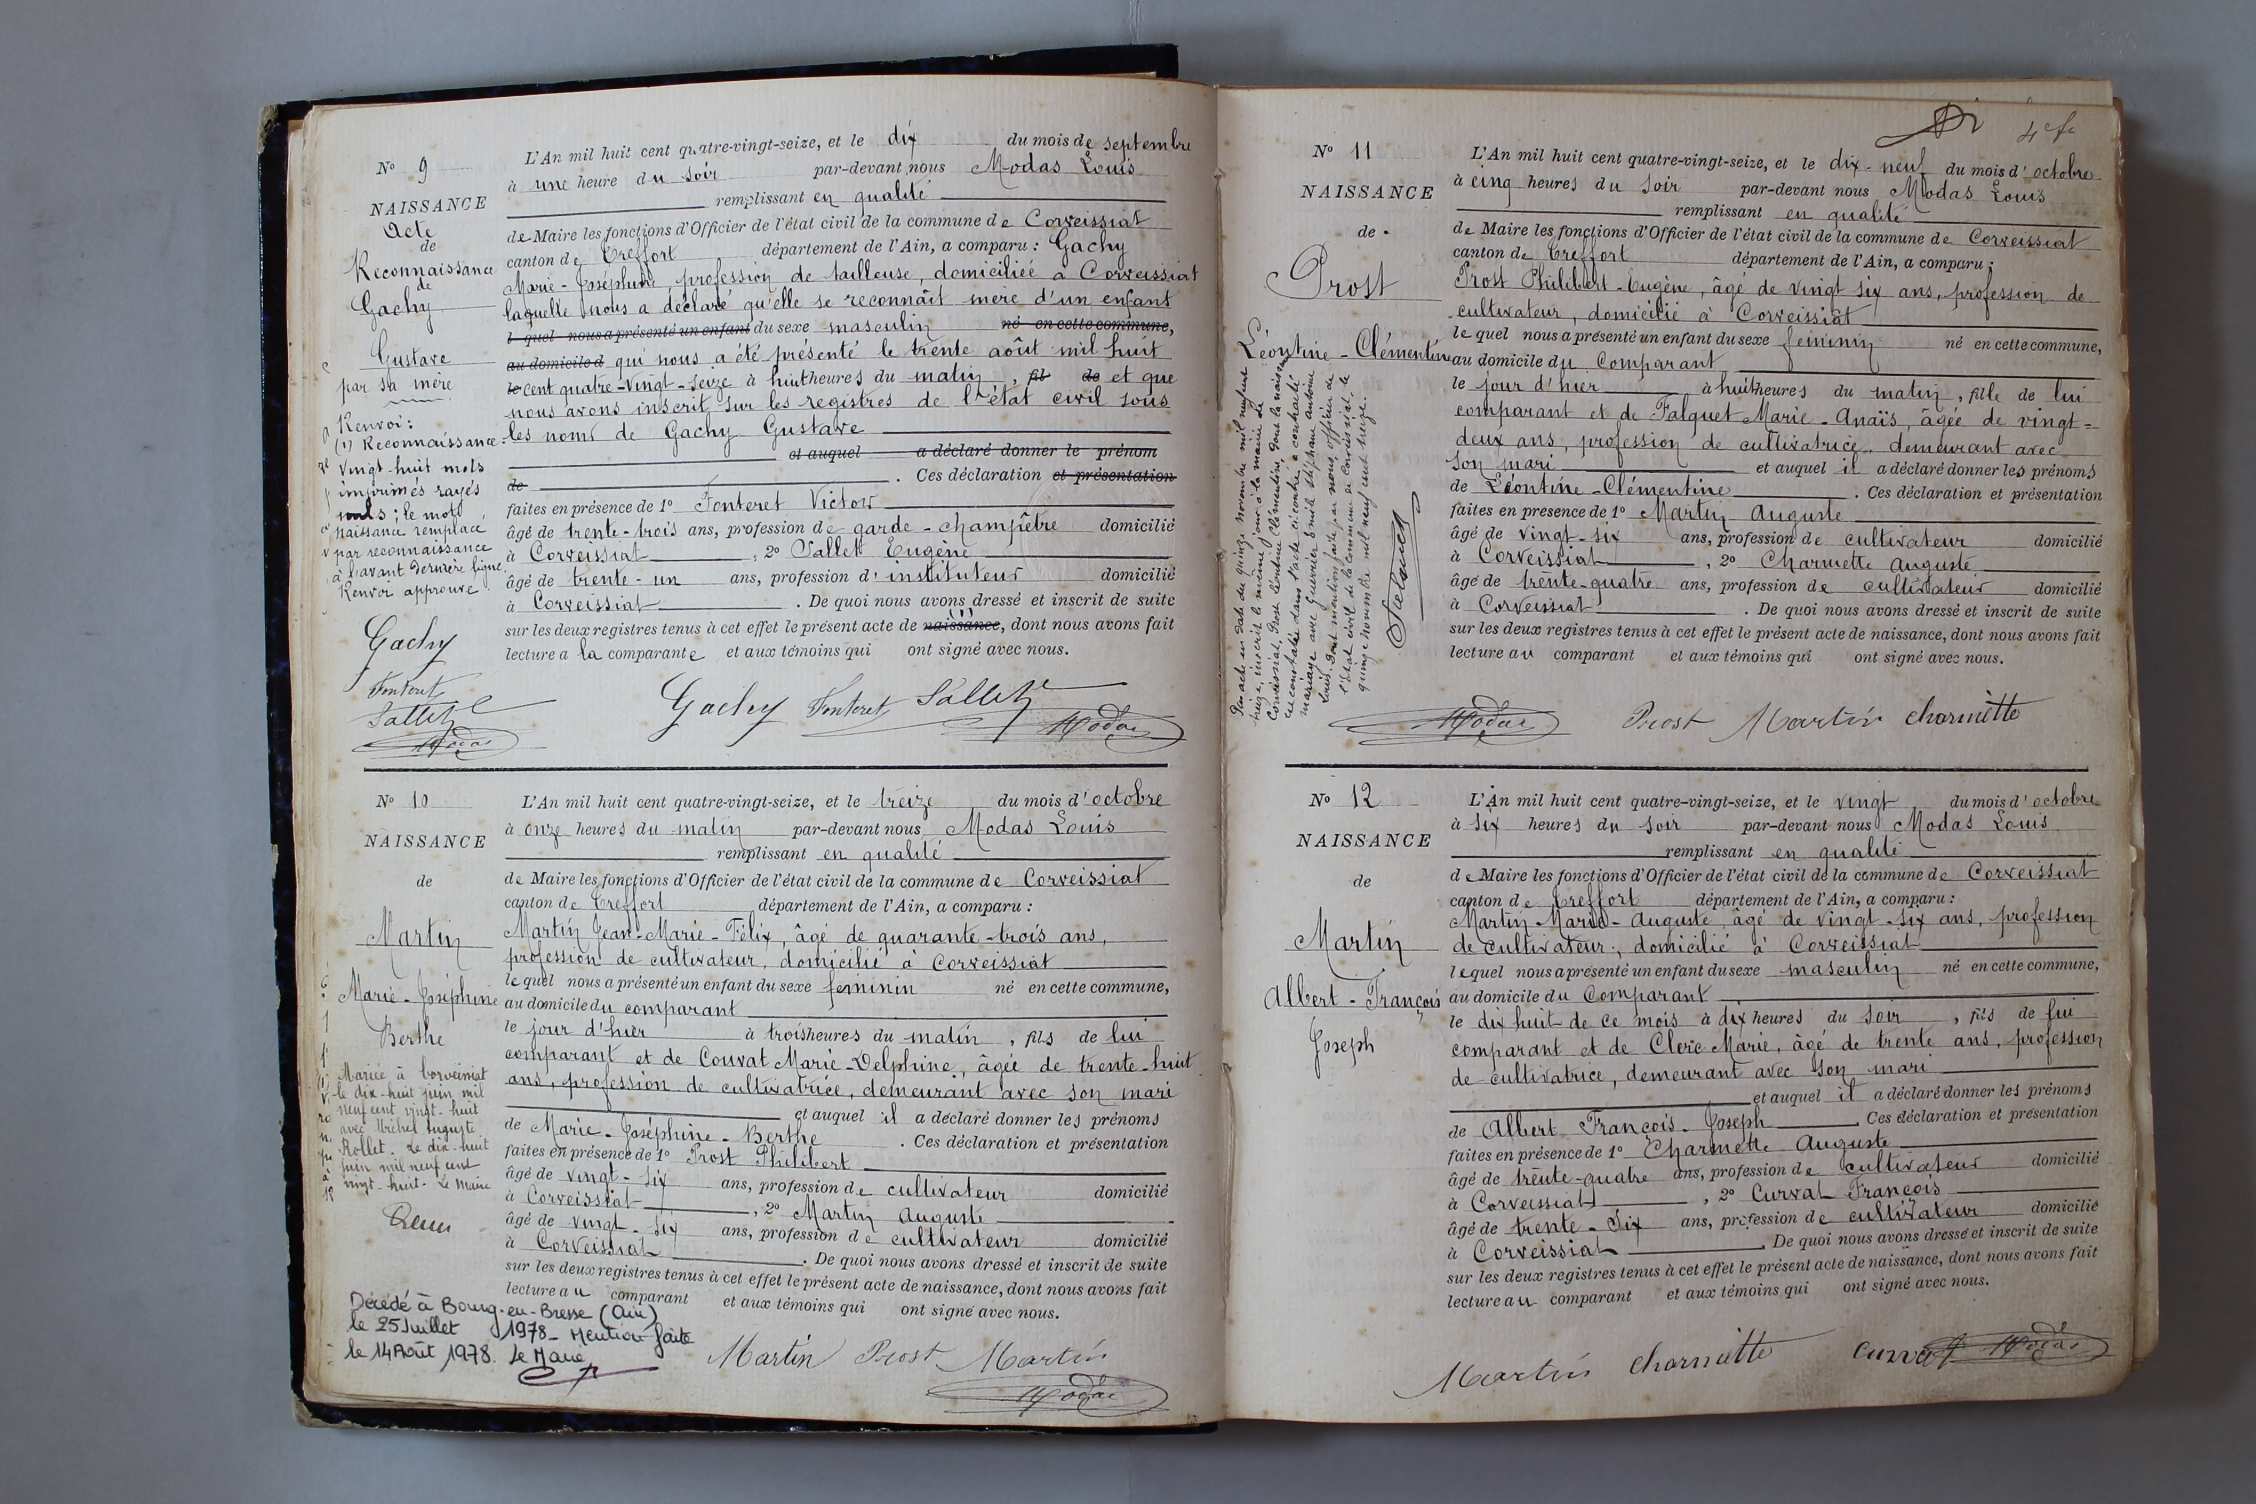 No 9
NAISSANCE
Acte
de
Reconnaissance
de
Gachy
Gustave
par sa mère
Renvoi:
(1) Reconnaissance
Vingt-huit mots
imprimés rayés
nuls; le mot
naissance remplacé
par reconnaissance
à l'avant dernière ligne
Renvoi approuvé
Gachy
Fonteret
Sallet E
Modas
L'An mil huit cent quatre-vingt-seize, et le dix du mois de septembre
à une heure du soir par-devant nous Modas Louis
remplissant en qualité
de Maire les fonctions d'Officier de l'état civil de la commune de Corveissiat
canton de Treffort département de l'Ain, a comparu: Gachy
Marie-Joséphine, profession de tailleuse, domiciliée à Corveissiat
laquelle nous a déclaré qu'elle se reconnaît mère d'un enfant
l quel nous a présenté un enfant du sexe masculin né en cette commune,
au domicile d qui nous a été présenté le trente août mil huit
le cent quatre-vingt-seize à huit heures du matin, fil de et que
nous avons inscrit sur les registres de l'état civil sous
les noms de Gachy Gustave
et auquel a déclaré donner le prénom
de . Ces déclaration et présentation
faites en présence de 1o Fonteret Victor
âgé de trente-trois ans, profession de garde-champêtre domicilié
à Corveissiat, 2o Sallet Eugène
âgé de trente-un ans, profession d'instituteur domicilié
à Corveissiat. De quoi nous avons dressé et inscrit de suite
sur les deux registres tenus à cet effet le présent acte de naissance, (1) dont nous avons fait
lecture a la comparante et aux témoins qui ont signé avec nous.
Gachy Fonteret Sallet E Modas
No 10
NAISSANCE
de
Martin
Marie-Joséphine
Berthe
Mariée à Corveissiat
le dix-huit juin mil
neuf cent vingt-huit
avec Michel Auguste
Rollet. Le dix-huit
juin mil neuf cent
vingt-huit. Le Maire
Décédé à Bourg-en-Bresse (Ain)
le 25 Juillet 1978 - Mention faite
le 14 Août 1978. Le Maire
L'An mil huit cent quatre-vingt-seize, et le treize du mois d'octobre
à onze heures du matin par-devant nous Modas Louis
remplissant en qualité
de Maire les fonctions d'Officier de l'état civil de la commune de Corveissiat
canton de Treffort département de l'Ain, a comparu:
Martin Jean-Marie-Félix, âgé de quarante-trois ans,
profession de cultivateur, domicilié à Corveissiat
lequel nous a présenté un enfant du sexe féminin né en cette commune,
au domicile du comparant
le jour d'hier à trois heures du matin, fils de lui
comparant et de Couvat Marie-Delphine, âgée de trente-huit
ans, profession de cultivatrice, demeurant avec son mari
et auquel il a déclaré donner les prénoms
de Marie-Joséphine-Berthe. Ces déclaration et présentation
faites en présence de 1o Prost Philibert
âgé de vingt-six ans, profession de cultivateur domicilié
à Corveissiat, 2o Martin Auguste
âgé de vingt-six ans, profession de cultivateur domicilié
à Corveissiat. De quoi nous avons dressé et inscrit de suite
sur les deux registres tenus à cet effet le présent acte de naissance, dont nous avons fait
lecture au comparant et aux témoins qui ont signé avec nous.
Martin Prost Martin
Modas
4e fe
No 11
NAISSANCE
de
Prost
Léontine-Clémentine
Par acte en date du quinze novembre mil neuf cent
treize, inscrit le même jour à la mairie de
Corveissiat, Prost Léontine Clémentine, dont la naissance
est constatée dans l'acte ci-contre, a contracté
mariage avec Guerrier Emile Stéphane Antoine
Louis. Dont mention faite par nous, officier de
l'état civil de la commune de Corveissiat, le
quinze novembre mil neuf cent treize.
L'An mil huit cent quatre-vingt-seize, et le dix-neuf du mois d'octobre
à cinq heures du soir par-devant nous Modas Louis
remplissant en qualité
de Maire les fonctions d'Officier de l'état civil de la commune de Corveissiat
canton de Treffort département de l'Ain, a comparu:
Prost Philibert-Eugène, âgé de vingt six ans, profession de
cultivateur, domicilié à Corveissiat
lequel nous a présenté un enfant du sexe féminin né en cette commune,
au domicile du Comparant
le jour d'hier à huit heures du matin, fille de lui
comparant et de Falquet Marie-Anaïs, âgée de vingt-
deux ans, profession de cultivatrice, demeurant avec
son mari et auquel il a déclaré donner les prénoms
de Léontine-Clémentine. Ces déclaration et présentation
faites en présence de 1o Martin Auguste
âgé de vingt-six ans, profession de cultivateur domicilié
à Corveissiat, 2o Charmette Auguste
âgé de trente-quatre ans, profession de cultivateur domicilié
à Corveissiat. De quoi nous avons dressé et inscrit de suite
sur les deux registres tenus à cet effet le présent acte de naissance, dont nous avons fait
lecture au comparant et aux témoins qui ont signé avec nous.
Modas Prost Martin Charmette
No 12
NAISSANCE
de
Martin
Albert-François
Joseph
L'An mil huit cent quatre-vingt-seize, et le vingt du mois d'octobre
à six heures du soir par-devant nous Modas Louis
remplissant en qualité
de Maire les fonctions d'Officier de l'état civil de la commune de Corveissiat
canton de Treffort département de l'Ain, a comparu:
Martin Marie-Auguste, âgé de vingt-six ans, profession
de cultivateur, domicilié à Corveissiat
lequel nous a présenté un enfant du sexe masculin né en cette commune,
au domicile du Comparant
le dix huit de ce mois à dix heures du soir, fils de lui
comparant et de Clerc Marie, âgé de trente ans, profession
de cultivatrice, demeurant avec son mari
et auquel il a déclaré donner les prénoms
de Albert François-Joseph. Ces déclaration et présentation
faites en présence de 1o Charmette Auguste
âgé de trente-quatre ans, profession de cultivateur domicilié
à Corveissiat, 2o Curvat François
âgé de trente-six ans, profession de cultivateur domicilié
à Corveissiat. De quoi nous avons dressé et inscrit de suite
sur les deux registres tenus à cet effet le présent acte de naissance, dont nous avons fait
lecture au comparant et aux témoins qui ont signé avec nous.
Martin Charmette Curvat Modas